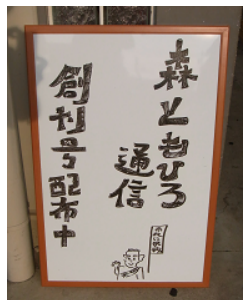 森ともひろ
通信
創刊号配布中